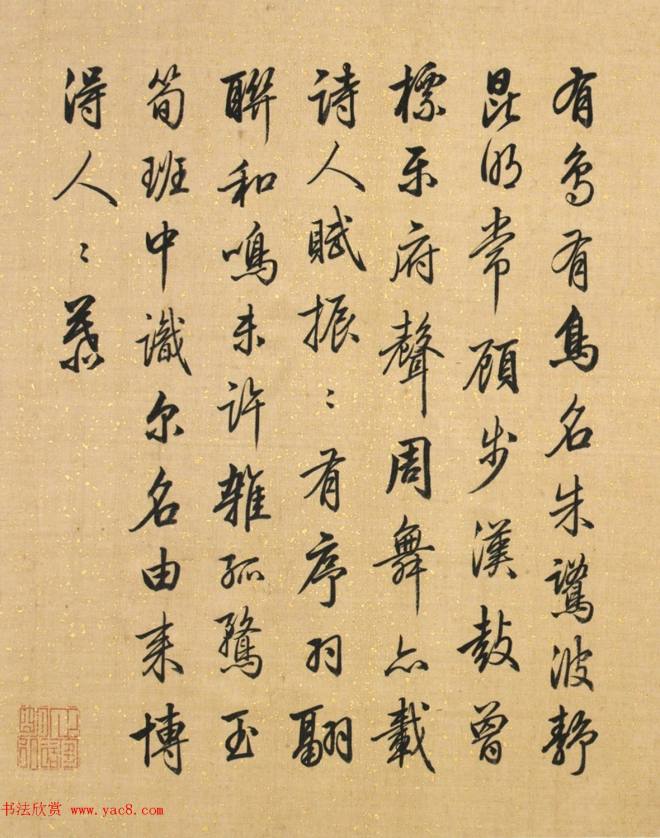 有鳥有鳥名朱鷺波静
昆明常顧步漢鼓曾
標乐府聲周舞亦載
詩人賦振〻有序羽翮
聯和鳴未許雜孤鶩玉
筍班中識尔名由来博
得人〻慕
书法欣赏 www.yac8.com